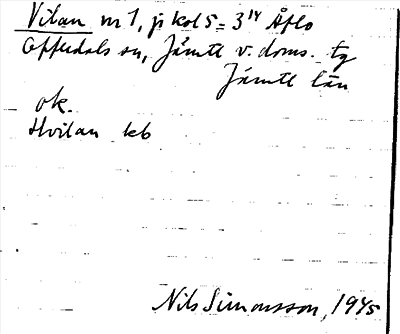 Vilan nr 1, j kol 5 = 3¹⁴ Åflo
Offerdals sn, Jämtl v. doms. tg
Jämtl län
ok.
Hvilan kb
Nils Simonsson, 1945